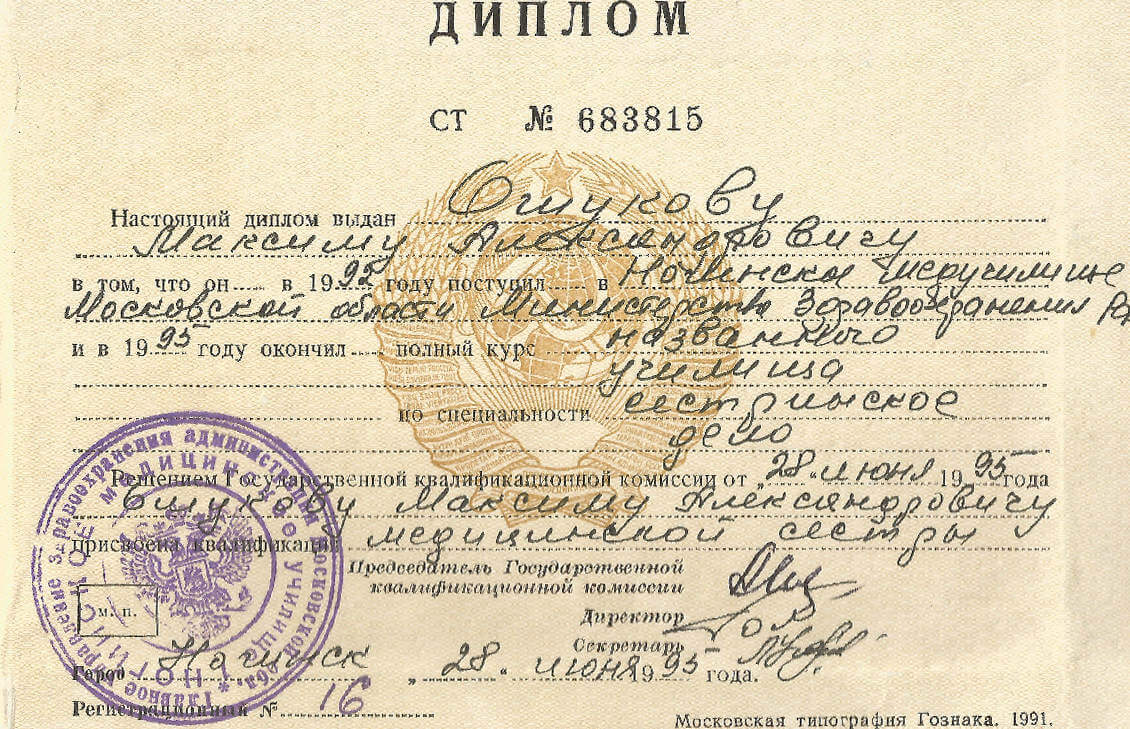 ДИПЛОМ
СТ № 683815
Настоящий диплом выдан
Максиму Александровичу
в том, что он в 1995 году поступил в Ногинское медучилище
Московской области Министерства Здравоохранения
и в 1995 году окончил полный курс названного
училища
по специальности сестринское
дело
Решением Государственной квалификационной комиссии от „28" июня 1995 года
Максиму Александровичу
присвоена квалификация медицинской сестры
Председатель Государственной
квалификационной комиссии
Директор
Секретарь
м. п.
Город Ногинск „28" июня 1995 года.
Регистрационный № 16
Московская типография Гознака. 1991.
Главное управление здравоохранения администрации Московской обл.
Ногинское медицинское училище